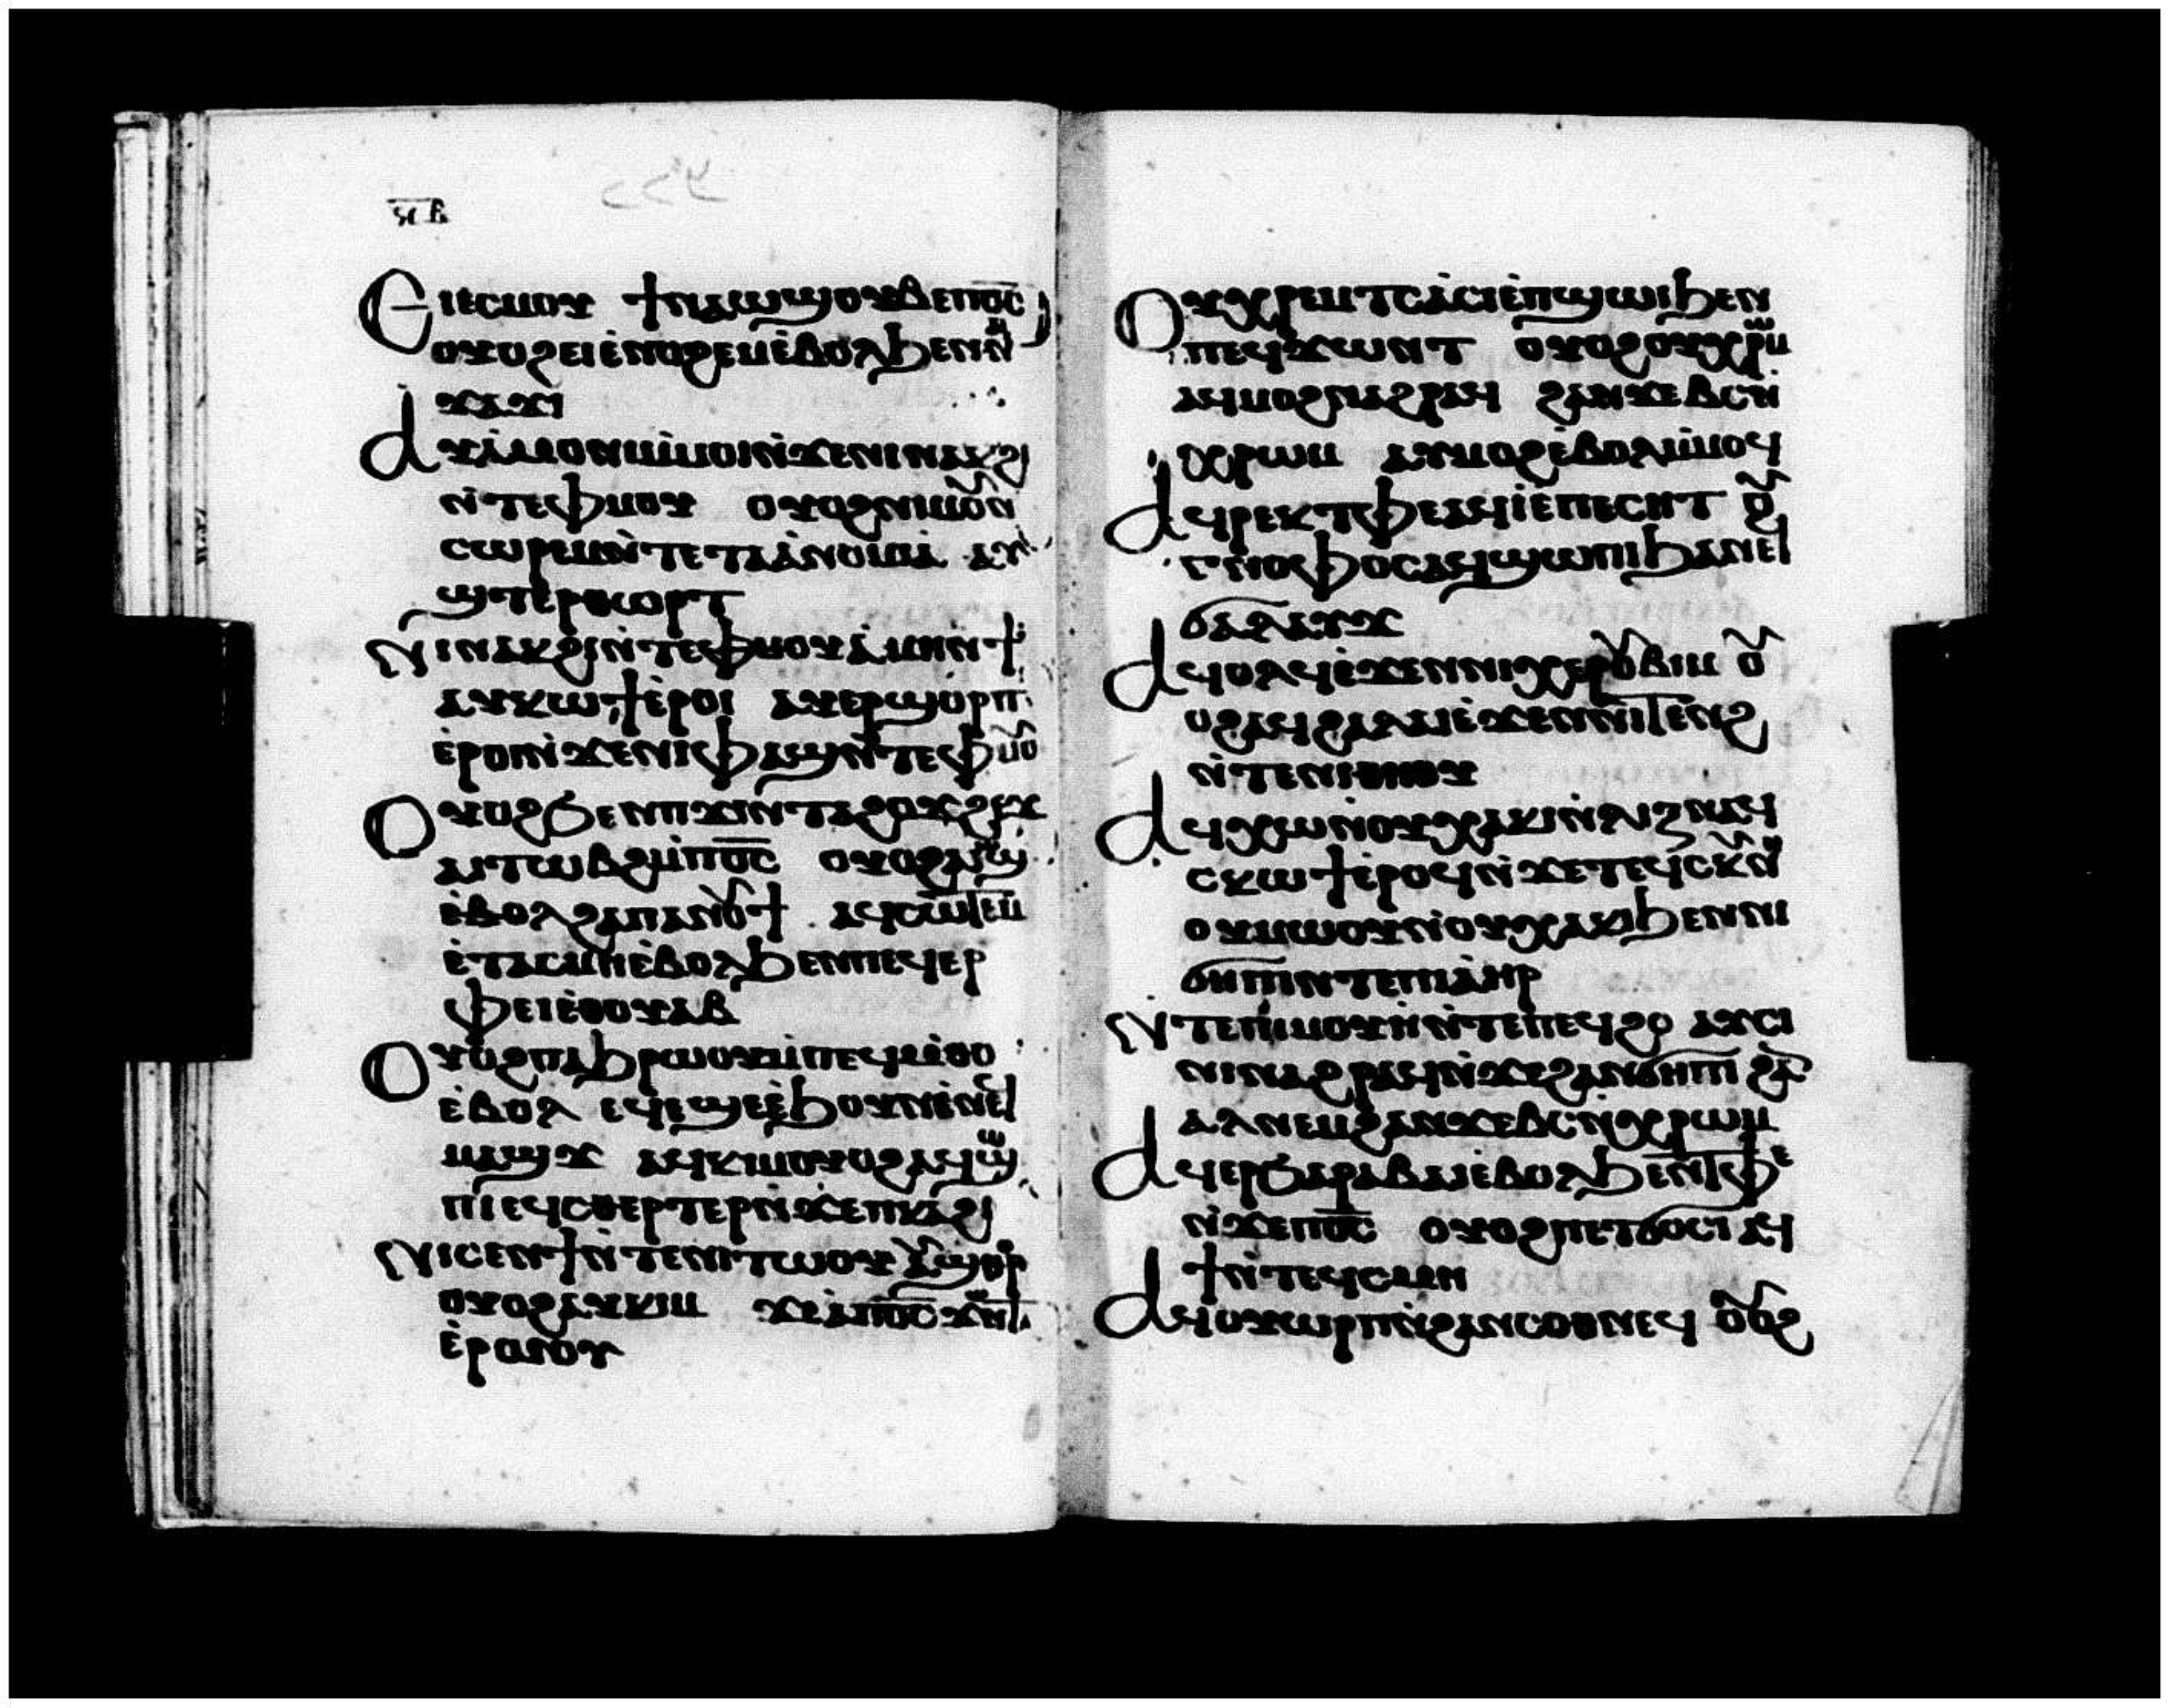 Ⲉⲓⲉⲥⲙⲟⲩ ϯⲛⲁⲱϣⲟⲩⲃⲉⲡⲟ̅ⲥ̅
ⲟⲩⲟϩⲉⲓⲉ̀ⲛⲟϩⲉⲙⲉ̀ⲃⲟⲗϧⲉⲛⲛⲁ
ϫⲁϫⲓ
Ⲁⲩⲁ̀ⲙⲟⲛⲓⲙ̀ⲙⲟⲓⲛ̀ϫⲉⲛⲓⲛⲁⲕϩⲓ
ⲛ̀ⲧⲉⲫⲙⲟⲩ ⲟⲩⲟϩⲛⲓⲙⲟⲩⲛ
ⲥⲱⲣⲉⲙⲛ̀ⲧⲉⲧⲁⲁ̀ⲛⲟⲙⲓⲁ̀ ⲁⲩ
ϣⲧⲉⲣⲑⲱⲣⲧ
Ⲛⲓⲛⲁⲕϩⲓⲛ̀ⲧⲉⲫⲙⲟⲩⲁ̀ⲙⲉⲛϯ
ⲁⲩⲕⲱϯⲉ̀ⲣⲟⲓ ⲁⲩⲉⲣϣⲟⲣⲡ
ⲉ̀ⲣⲟⲓⲛ̀ϫⲉⲛⲓⲫⲁϣⲛ̀ⲧⲉⲫⲙⲟⲩ
Ⲟⲩⲟϩϧⲉⲛⲡϫⲓⲛⲧⲁϩⲟϫϩⲉϫ
ⲁⲓⲧⲱⲃϩⲙ̀ⲡⲟ̅ⲥ̅ ⲟⲩⲟϩⲁⲓⲱϣ
ⲉ̀ⲃⲟⲗϩⲁⲡⲁⲛⲟⲩϯ ⲁϥⲥⲱⲧⲉⲙ
ⲉ̀ⲧⲁⲥⲙⲏⲉ̀ⲃⲟⲗϧⲉⲛⲡⲉϥⲉⲣ
ⲫⲉⲓⲉⲑⲟⲩⲁⲃ
Ⲟⲩⲟϩⲡⲁϧⲣⲱⲟⲩⲙ̀ⲡⲉϥⲙ̀ⲑⲟ
ⲉ̀ⲃⲟⲗ ⲉϥⲉϣⲉⲉ̀ϧⲟⲩⲛⲉ̀ⲛⲉϥ
ⲙⲁϣϫ ⲁϥⲕⲓⲙⲟⲩⲟϩⲁϥϣⲱ
ⲡⲓⲉϥⲥⲑⲉⲣⲧⲉⲣⲛ̀ϫⲉⲡⲕⲁϩⲓ
Ⲛⲓⲥⲉⲛϯⲛ̀ⲧⲉⲛⲓⲧⲱⲟⲩⲁⲩϣⲑⲟⲣ
ⲟⲩⲟϩⲁⲩⲕⲓⲙ ϫⲉⲁ̀ⲡⲟ̅ⲥ̅ϫⲱⲛⲧ
ⲉ̀ⲣⲱⲟⲩ
Ⲟⲩⲭⲣⲉⲙⲧⲥⲁ̀ⲥⲓⲉ̀ⲡϣⲱⲓϧⲉⲛ
ⲡⲉϥϫⲱⲛⲧ ⲟⲩⲟϩⲟⲩⲭⲣⲱⲙ
ⲁϥⲙⲟϩⲛⲁϩⲣⲁϥ ϩⲁⲛϫⲉⲃⲥⲛ̀
ⲭⲣⲱⲙ ⲁⲩⲙⲟϩⲉ̀ⲃⲟⲗⲙ̀ⲙⲟϥ
Ⲁϥⲣⲉⲕⲧⲫⲉⲁϥⲓ̀ⲉ̀ⲡⲉⲥⲏⲧ ⲟⲩϩ
ⲅⲛⲟⲫⲟⲥⲁϥϣⲱⲡⲓϧⲁⲛⲉϥ
ϭⲁⲗⲁⲩϫ
Ⲁϥⲟⲗϥⲉ̀ϫⲉⲛⲛⲓⲭⲉⲣⲟⲩⲃⲓⲙ ⲟⲩ
ⲟϩⲁϥϩⲁⲗⲁⲓⲉ̀ϫⲉⲛⲛⲓⲧⲉⲛϩ
ⲛ̀ⲧⲉⲛⲓⲑⲏⲟⲩ
Ⲁϥⲭⲱⲛ̀ⲟⲩⲭⲁⲕⲓⲛ̀ⲗⲓⲍⲛⲁϥ
ⲥⲕⲱϯⲉ̀ⲣⲟϥⲛ̀ϫⲉⲧⲉϥⲥⲕⲩⲛⲏ
ⲟⲩⲙⲱⲟⲩⲛ̀ⲟⲩⲭⲁⲕⲓϧⲉⲛⲛⲓ
ϭⲏⲡⲓⲛⲧⲉⲡⲓⲁ̀ⲏⲣ
Ⲛⲧⲉⲡⲓⲙⲟⲩⲏ̀ⲛ̀ⲧⲉⲡⲉϥϩⲟ ⲁⲩⲥⲓ
ⲛⲓⲛⲁϩⲣⲁϥⲛ̀ϫⲉϩⲁⲛϭⲏⲡⲓ ϩⲁ
ⲁⲗⲛⲉⲙϩⲁⲛϫⲉⲃⲥⲛ̀ⲭⲣⲱⲙ
Ⲁϥⲉⲣϧⲁⲣⲁⲃⲁⲓⲉ̀ⲃⲟⲗϧⲉⲛⲧⲫⲉ
ⲛ̀ϫⲉⲡⲟ̅ⲥ̅ ⲟⲩⲟϩⲡⲉⲧϭⲟⲥⲓ ⲁϥ
ϯⲛ̀ⲧⲉϥⲥⲙⲏ
Ⲁϥⲟⲩⲱⲣⲡⲛ̀ϩⲁⲛⲥⲟⲑⲛⲉϥ ⲟⲩⲟϩ